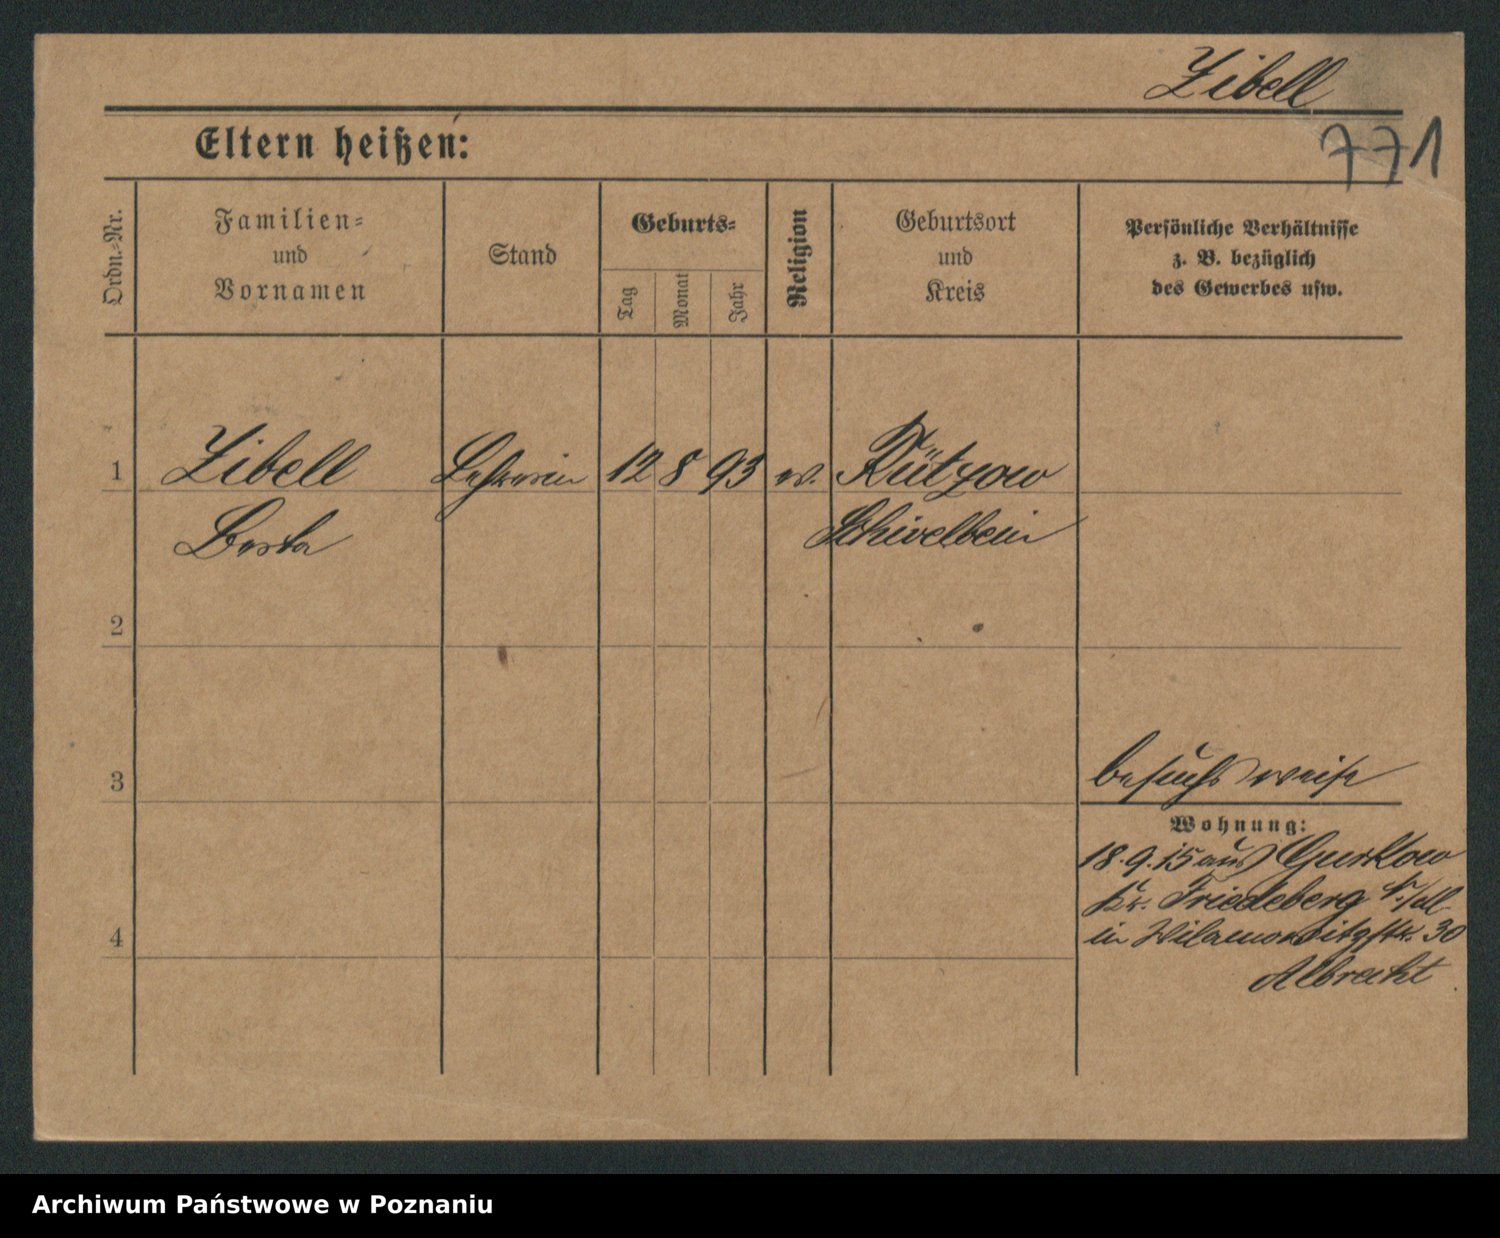 Zibell
771
Eltern heißen:
Ordn.-Nr.
Familien-
und
Vornamen
Stand
Geburts-
Tag
Monat
Jahr
Religion
Geburtsort
und
Kreis
Persönliche Verhältnisse
z. B. bezüglich
des Gewerbes usw.
1 Zibell Lehrerin 12 8 93 ev. Rützow
Berta Schivelbein
2
3
besuchsweise
Wohnung:
18.9.15 aus Gurkow
Kr. Friedeberg
4
in Wilamowitzstr. 30
Albrecht
Archiwum Państwowe w Poznaniu